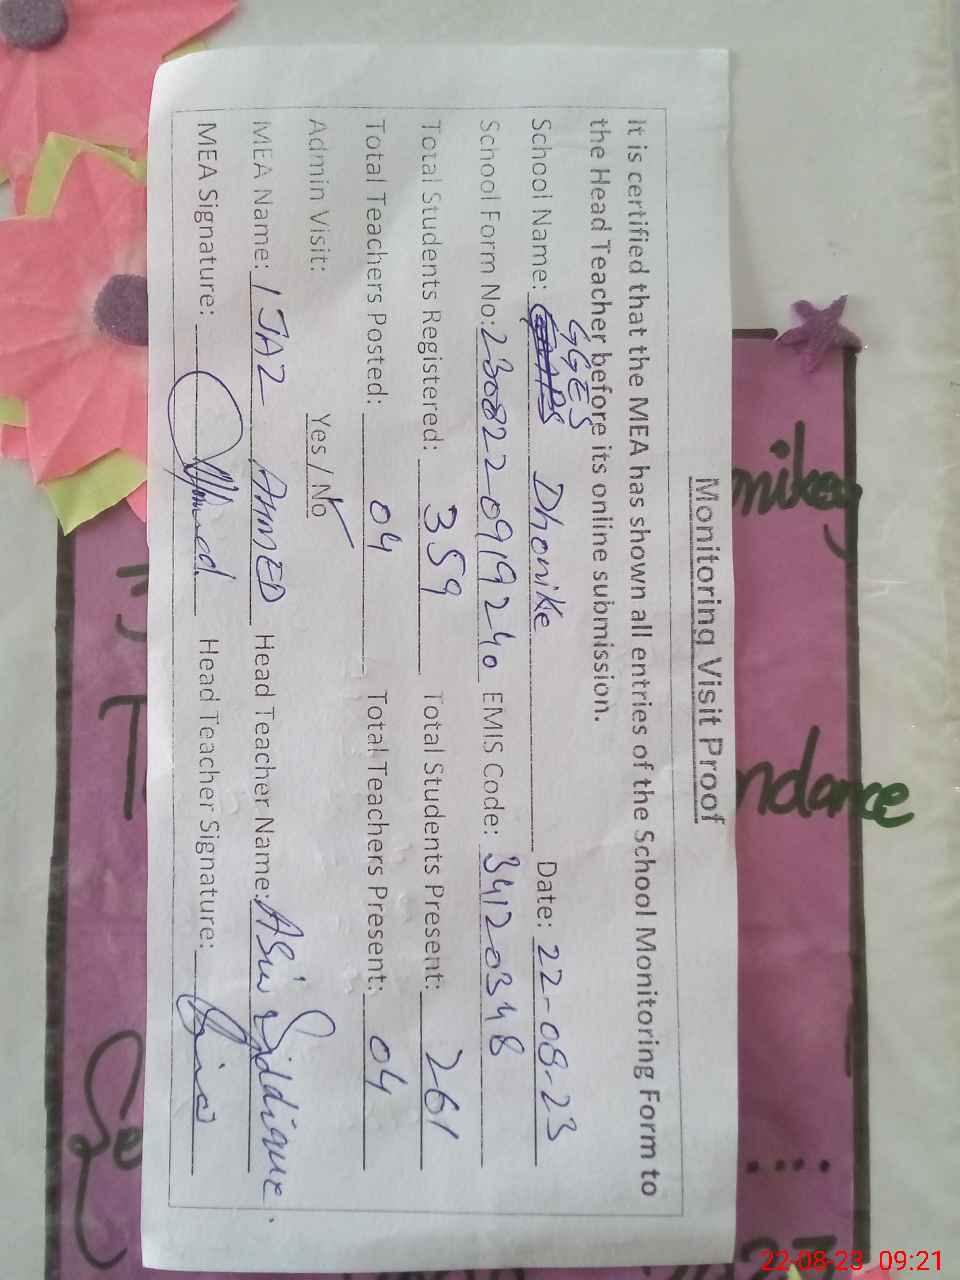 Monitoring Visit Proof
It is certified that the MEA has shown all entries of the School Monitoring Form to
the Head Teacher before its online submission.
GGES
School Name: Dhonike Date: 22-08-23
School Form No: 2308220919240 EMIS Code: 34120348
Total Students Registered: 359 Total Students Present: 261
Total Teachers Posted: 04 Total Teachers Present: 04
Admin Visit: Yes / No
MEA Name: IJAZ AHMED Head Teacher Name: Siddique
MEA Signature: Head Teacher Signature:
22-08-23 09:21